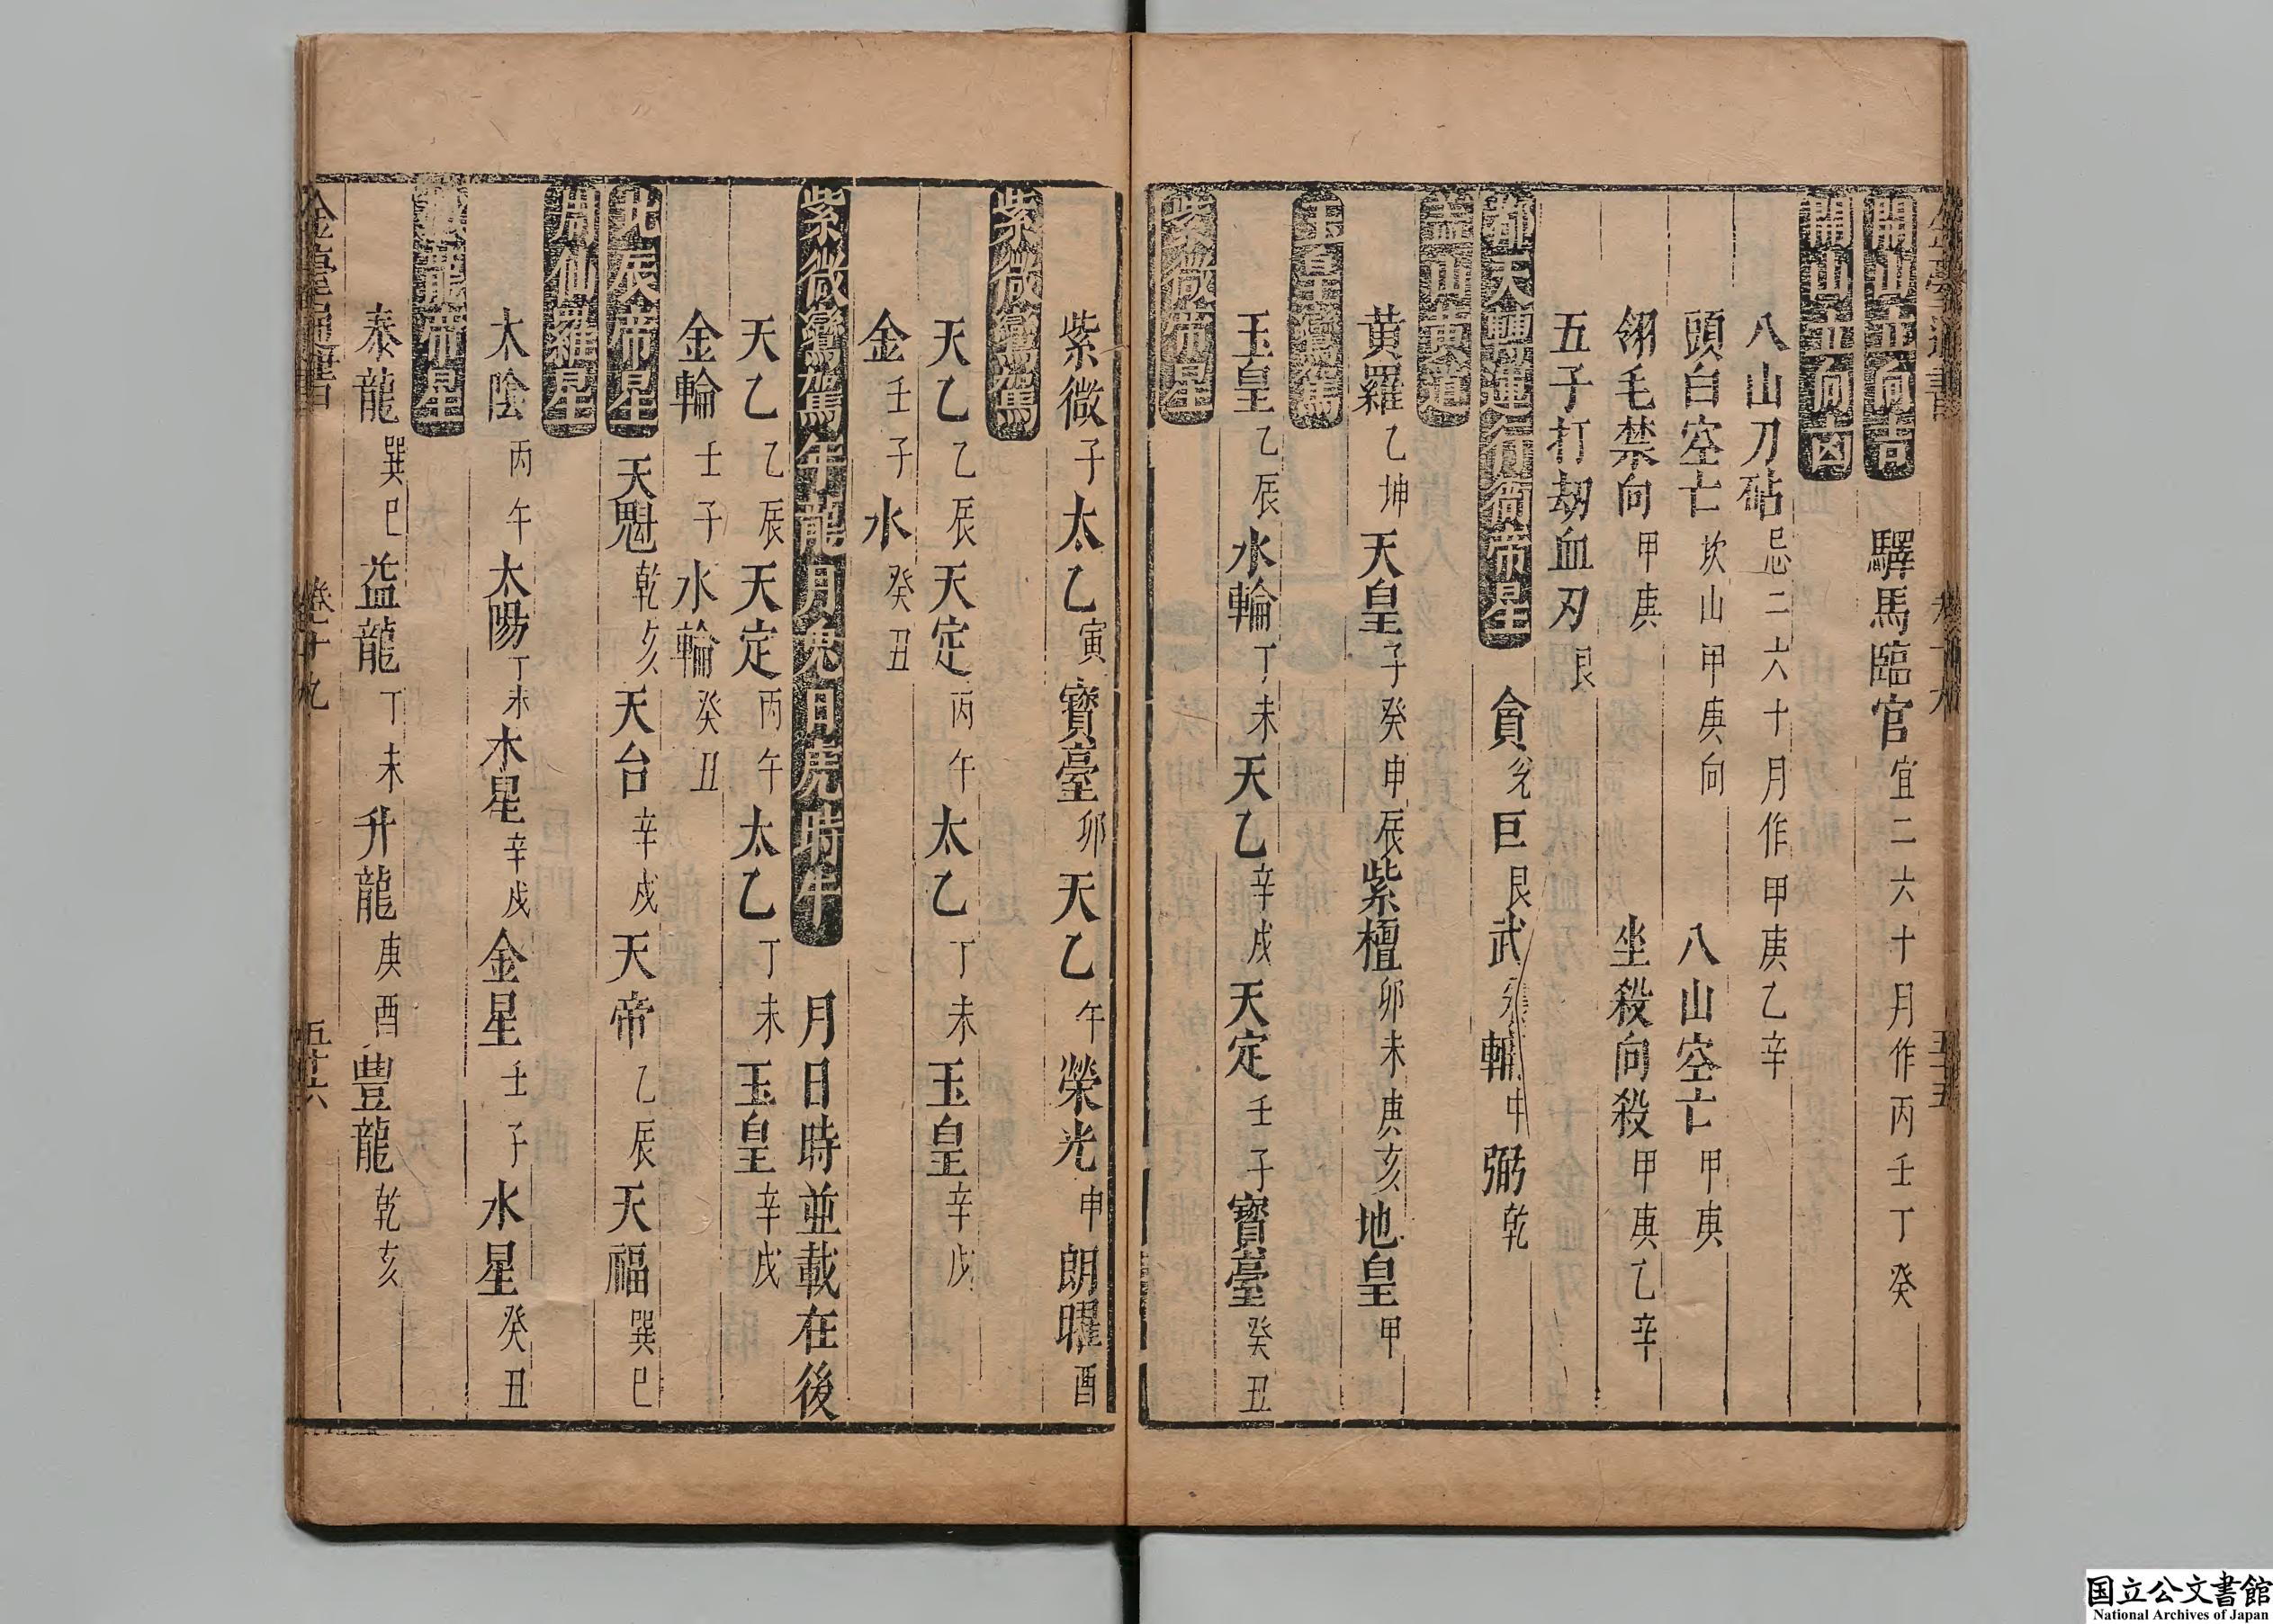 開山立向吉 驛馬臨官 宜二六十月作丙壬丁癸
開山立向凶
八山刀砧 忌二六十月作甲庚乙辛
頭白空亡 坎山甲庚向 八山空亡 甲庚
翎毛禁向 甲庚 坐殺向殺 甲庚乙辛
五子打劫血刃 艮
都天轉運行衙帝星 貪 兊 巨 艮 武 輔 中 弼 乾
蓋山黄道
黄羅 乙坤 天皇 子癸申辰 紫檀 卯未庚亥 地皇 甲
玉皇鑾駕
玉皇 乙辰 水輪 丁未 天乙 辛戌 天定 壬子 寳臺 癸丑
紫微帝星
紫微 子 太乙 寅 寳臺 卯 天乙 午 榮光 申 朗曜 酉
紫微鑾駕
天乙 乙辰 天定 丙午 太乙 丁未 玉皇 辛戌
金 壬子 水 癸丑
紫微鑾駕年龍月兔日虎時牛 月日時並載在後
天乙 乙辰 天定 丙午 太乙 丁未 玉皇 辛戌
金輪 壬子 水輪 癸丑
北辰帝星 天魁 乾亥 天台 辛戌 天帝 乙辰 天福 巽巳
仙羅星
太陰 丙午 太陽 丁未 木星 辛戌 金星 壬子 水星 癸丑
龍帝星
泰龍 巽巳 益龍 丁未 升龍 庚酉 豊龍 乾亥
卷十九 五十六
国立公文書館
National Archives of Japan